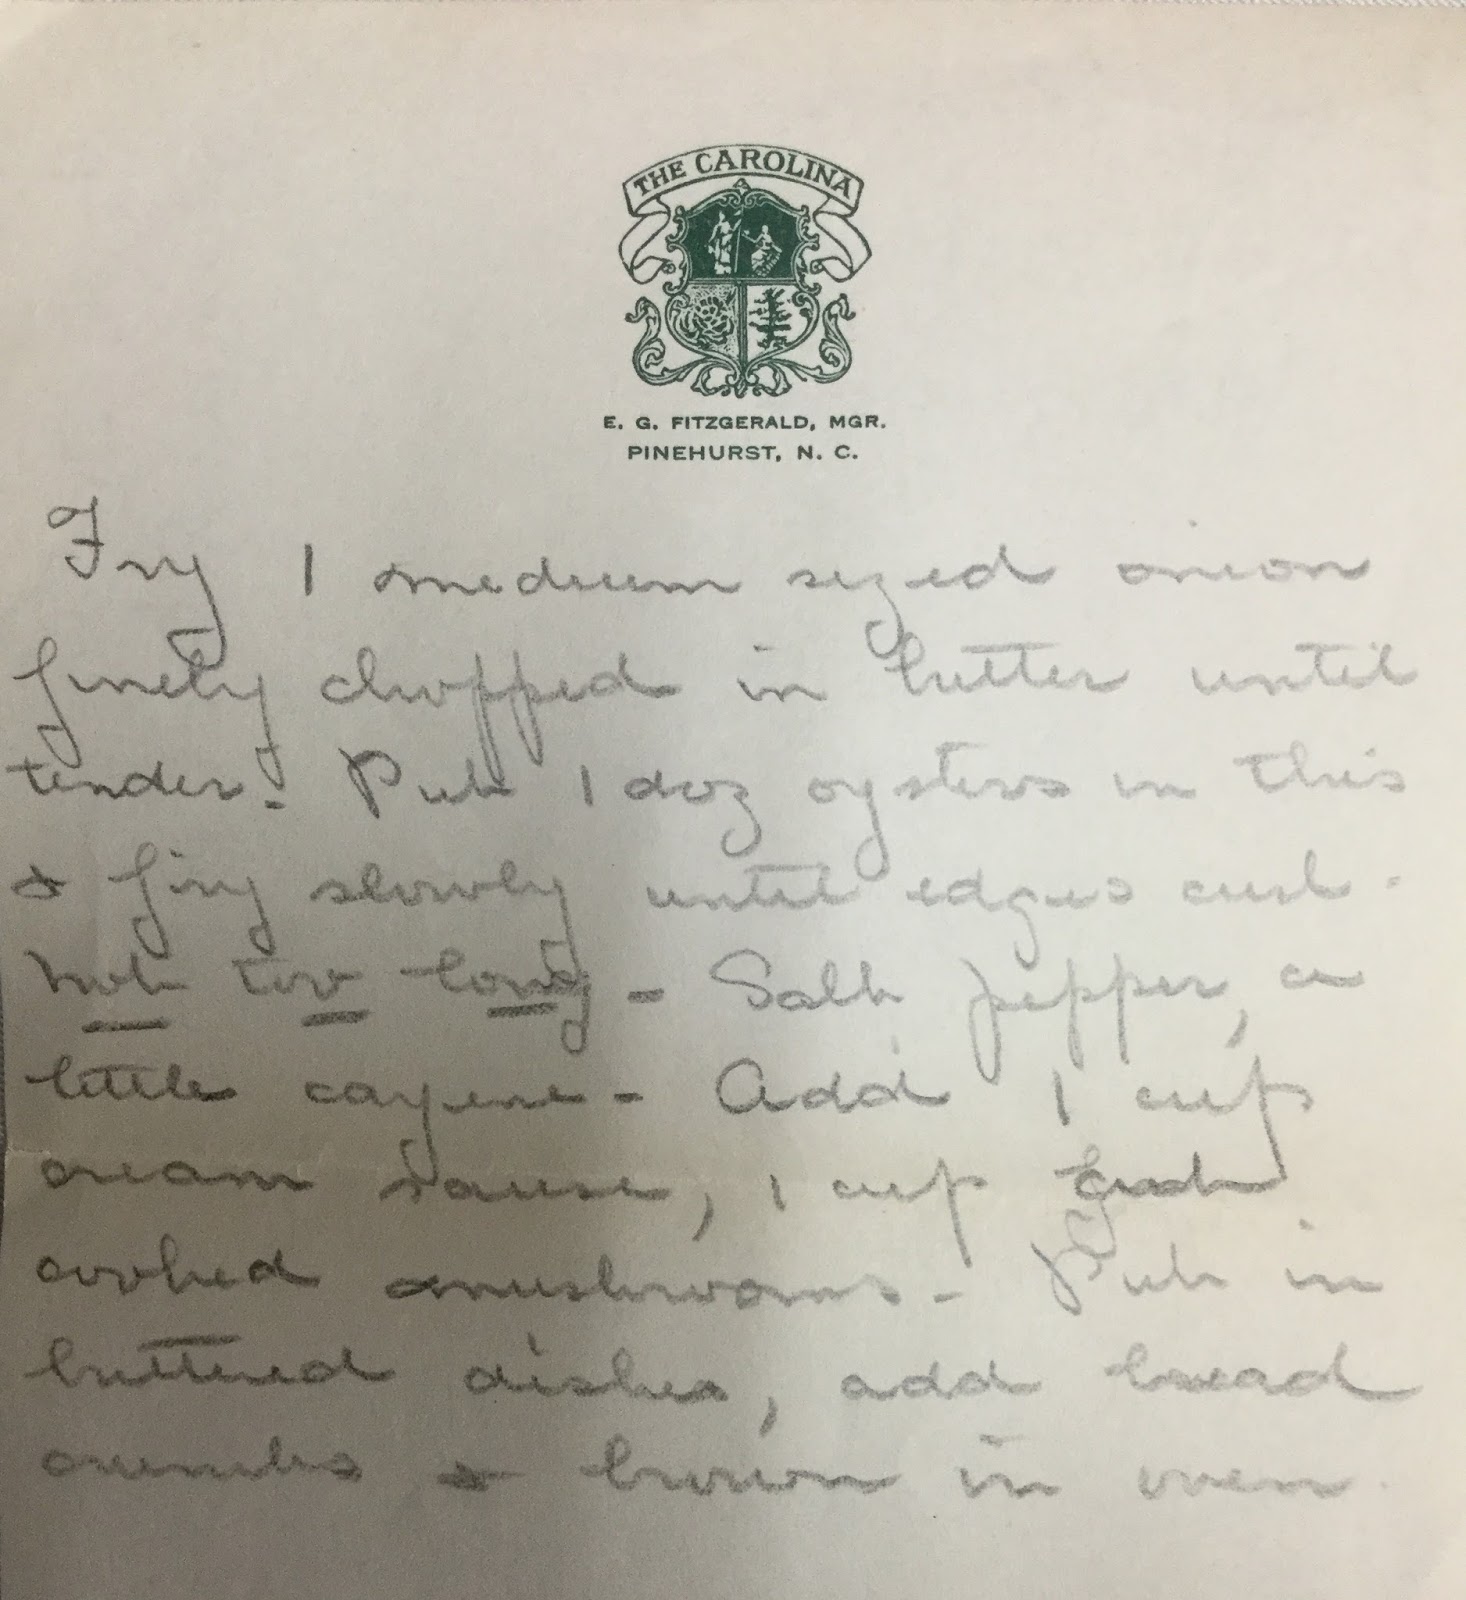 THE CAROLINA
E. G. FITZGERALD, MGR.
PINEHURST, N. C.
Fry 1 medium sized onion
finely chopped in butter until
tender. Put 1 doz oysters in this
& fry slowly until edges curl.
Not too long - Salt pepper, a
little cayene - Add 1 cup
cream sause, 1 cup
cooked mushrooms - Put in
buttered dishes, add bread
crumbs & brown in oven.